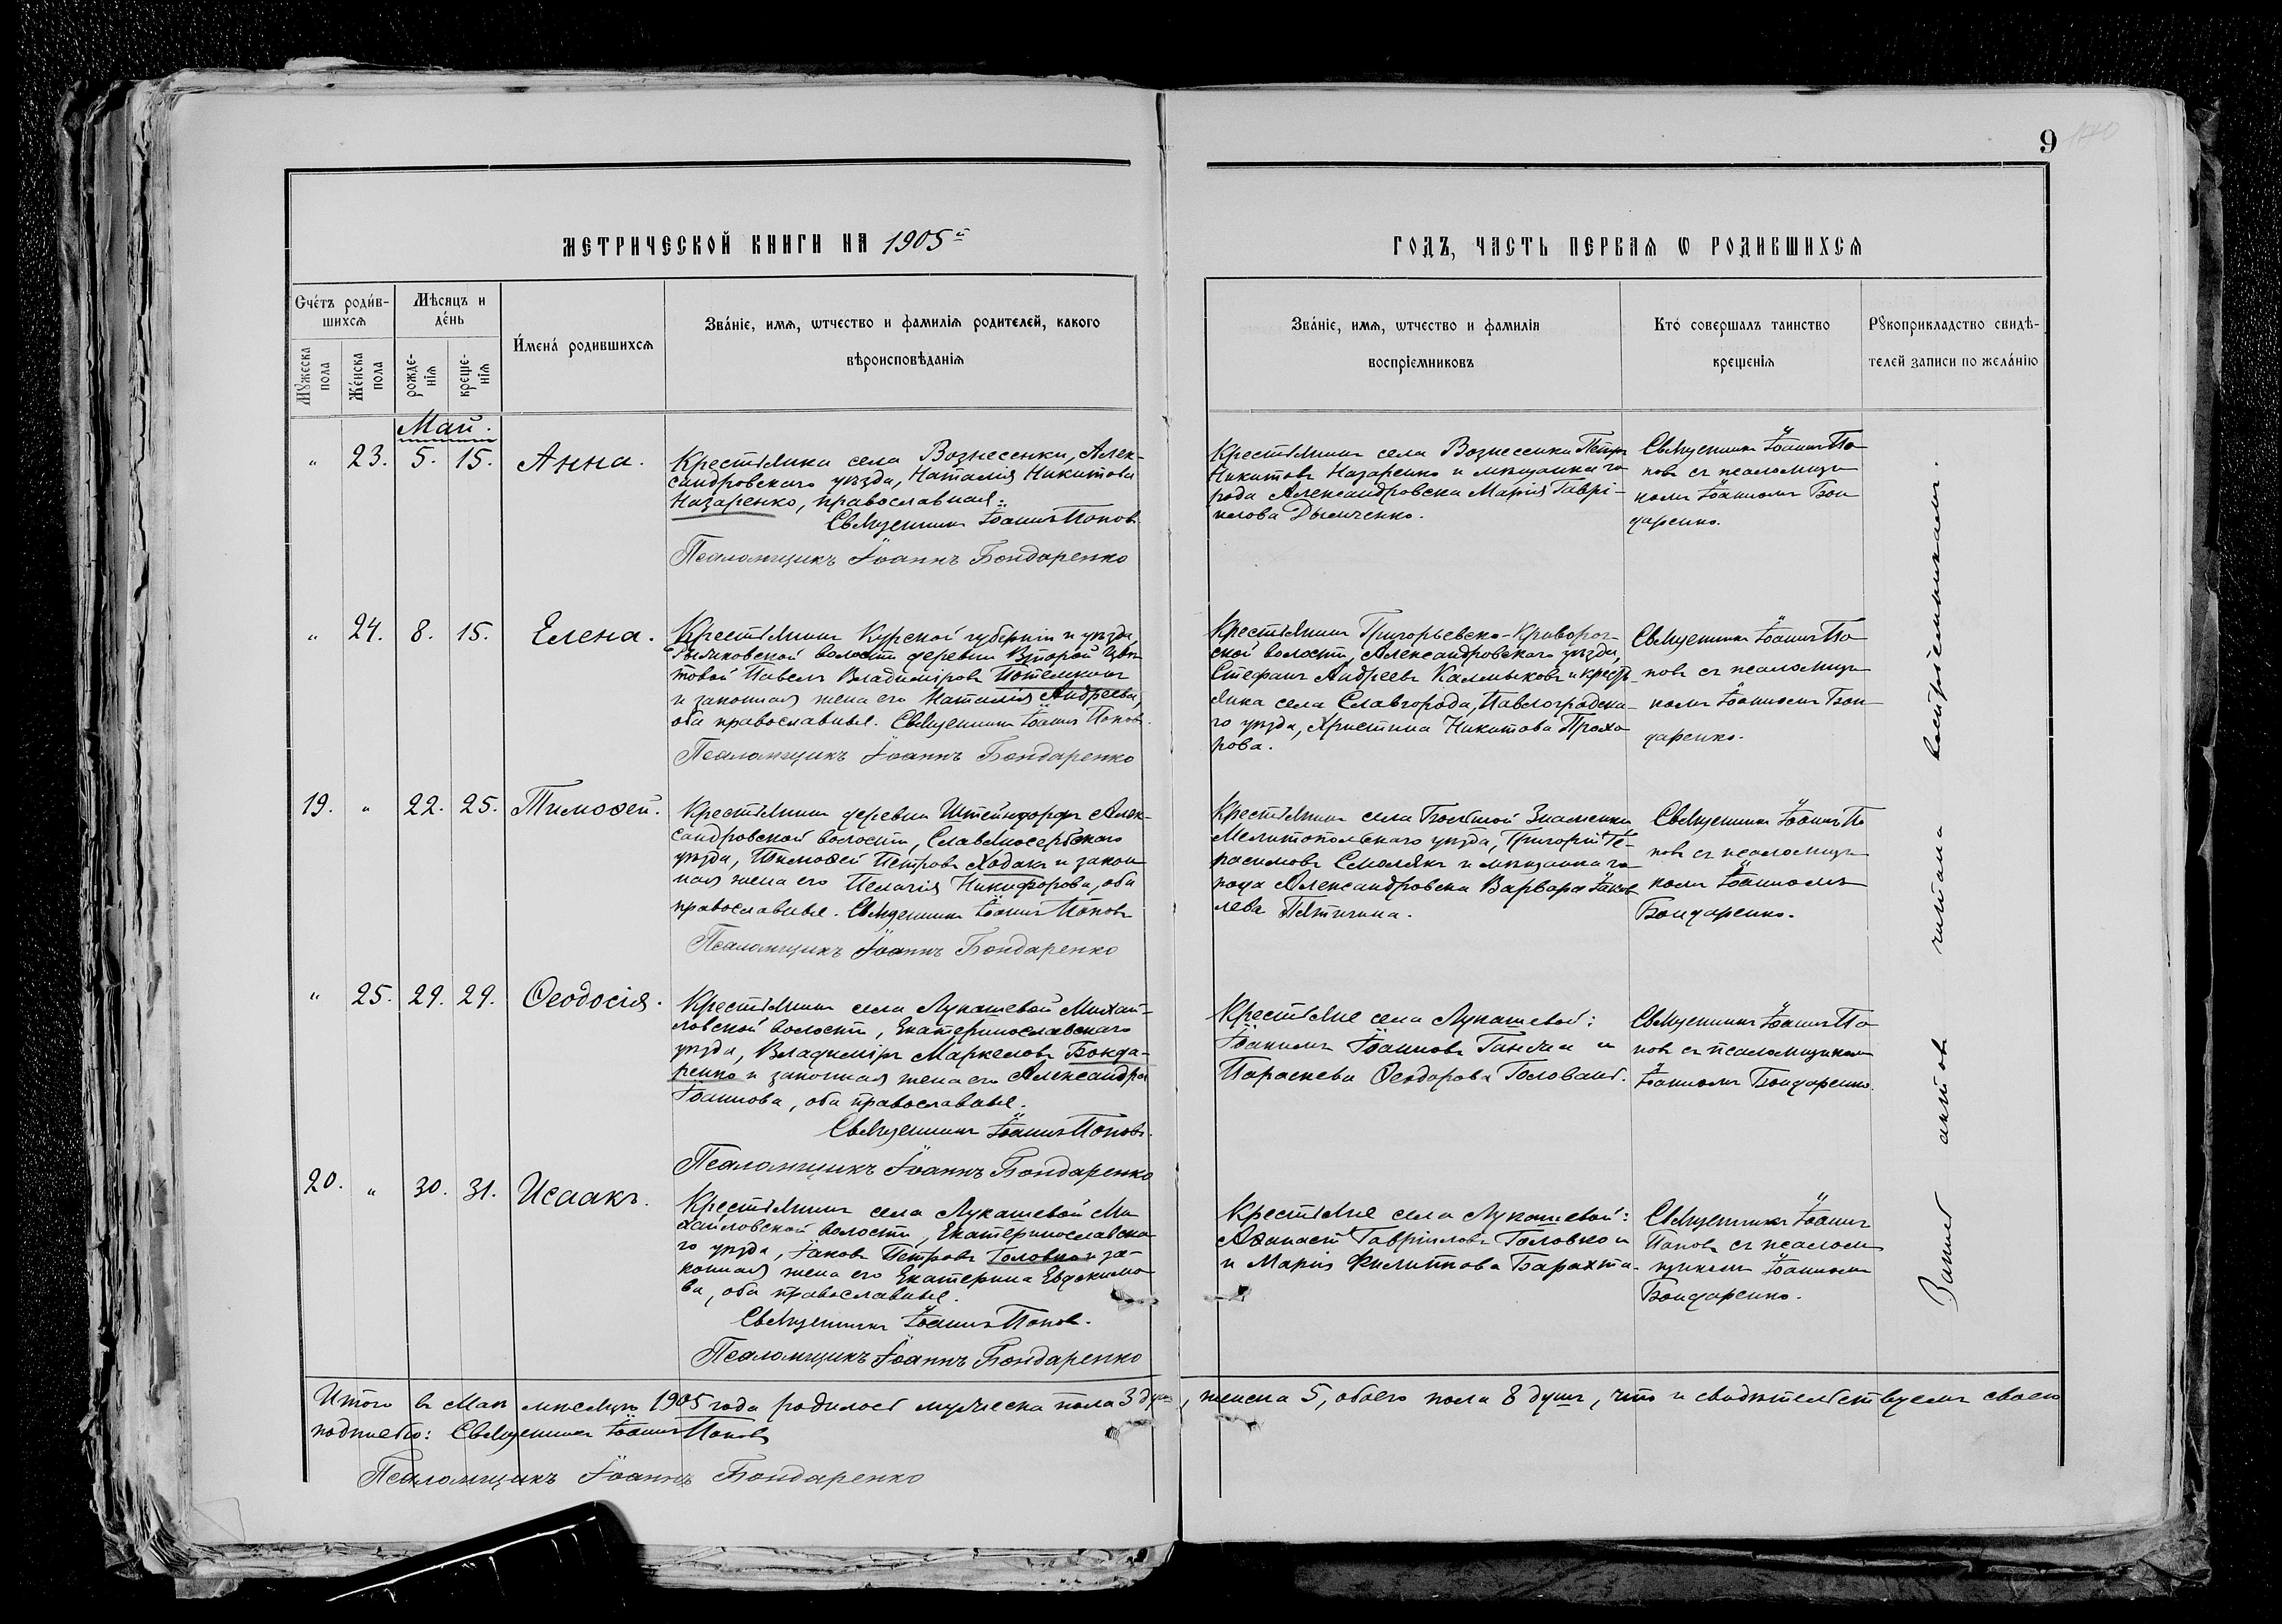 9
МЕТРИЧЕСКОЙ КНИГИ НА 1905й
ГОДЪ, ЧАСТЬ ПЕРВАЯ Ѡ РОДИВШИХСЯ
Счетъ родив-
шихся
Мѣсяцъ и
день
Мужеска
пола
Женска
пола
рожде-
нія
креще-
нія
Имена родившихся
Званіе, имя, ѡтчество и фамилія родителей, какого
вѣроисповѣданія
Званіе, имя, ѡтчество и фамилія
воспріемниковъ
Кто совершалъ таинство
крещенія
Рꙋкоприкладство свидѣ-
телей записи по желанію
Май.
" 23. 5. 15. Анна.
Крестьянка села Вознесенки, Алек-
сандровскаго уѣзда, Наталія Никитова
Назаренко, православная.
Священникъ Іоаннъ Поповъ
Псаломщикъ Іоаннъ Бондаренко
Крестьянинъ села Вознесенки Петръ
Никитовъ Назаренко и мѣщанка го
рода Александровска Марія Гаврі-
илова Дымченко.
Священникъ Іоаннъ По
повъ съ псаломщи
комъ Іоанномъ Бон
даренко.
" 24. 8. 15. Елена.
Крестьянинъ Курской губерніи и уѣзда,
волости деревни Второй
Павелъ Владиміровъ
и законная жена его Наталія Андреева,
оба православные. Священникъ Іоаннъ Поповъ.
Псаломщикъ Іоаннъ Бондаренко
Крестьянинъ Григорьевско-Криворож-
ской волости, Александровскаго уѣзда,
Стефанъ Андреевъ Калмыковъ и кресть-
янка села Славгорода, Павлоградска-
го уѣзда, Христина Никитова Прохо
рова.
Священникъ Іоаннъ По
повъ съ псаломщи
комъ Іоанномъ Бон
даренко.
19. " 22. 25. Тимоѳей.
Крестьянинъ деревни Штейнфорфъ Алек-
сандровской волости, Славяносербскаго
уѣзда, Тимоѳей Петровъ Ходакъ и закон
ная жена его Пелагія Никифорова, оба
православные. Священникъ Іоаннъ Поповъ
Псаломщикъ Іоаннъ Бондаренко
Крестьянинъ села Большой Знаменки
Мелитопольскаго уѣзда, Григорій Ге-
расимовъ Смолякъ и мѣщанка го
рода Александровска Варвара Іаков
лева Пятигина.
Священникъ Іоаннъ По
повъ съ псаломщи
комъ Іоанномъ
Бондаренко.
" 25. 29. 29. Ѳеодосія.
Крестьянинъ села Лукашевой Михай-
ловской волости, Екатеринославскаго
уѣзда, Владиміръ Маркеловъ Бонда-
ренко и законная жена его Александра
Іоаннова, оба православные.
Священникъ Іоаннъ Поповъ.
Псаломщикъ Іоаннъ Бондаренко
Крестьяне села Лукашевой:
Іоакимъ Іоанновъ Ганжа и
Параскева Ѳеодорова Головань.
Священникъ Іоаннъ По
повъ съ псаломщикомъ
Іоанномъ Бондаренко.
20. " 30. 31. Исаакъ.
Крестьянинъ села Лукашевой Ми
хайловской волости, Екатеринославска
го уѣзда, Іаковъ Петровъ Головко и за-
конная жена его Екатерина Евдокимо
ва, оба православные.
Священникъ Іоаннъ Поповъ.
Псаломщикъ Іоаннъ Бондаренко
Крестьяне села Лукашевой:
Аѳанасій Гавріиловъ Головко и
и Марія Филиппова Барахта.
Священникъ Іоаннъ
Поповъ съ псалом
щикомъ Іоанномъ
Бондаренко.
Запись актовъ читана воспріемникамъ.
Итого въ Маѣ мѣсяцѣ 1905 года родилось мужеска пола 3 душъ, женска 5, обоего пола 8 душъ, что и свидѣтельствуемъ своею
подписью: Священникъ Іоаннъ Поповъ
Псаломщикъ Іоаннъ Бондаренко